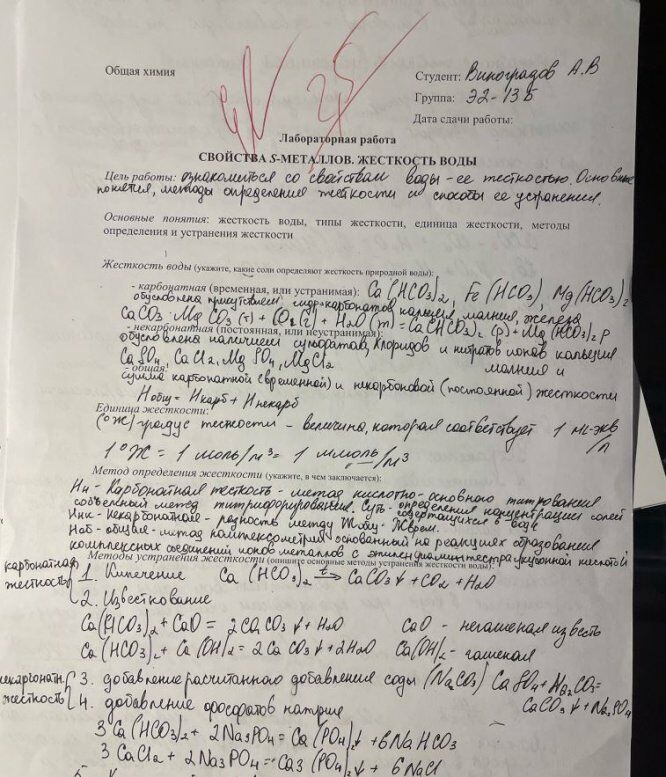 Общая химия
Студент: Виноградов А.В
Группа: Э2-13Б
Дата сдачи работы:
Лабораторная работа
СВОЙСТВА S-МЕТАЛЛОВ. ЖЕСТКОСТЬ ВОДЫ
Цель работы: ознакомиться со свойствам воды - ее жесткостью. Основные
понятия, методы определения жёсткости и способы ее устранения.
Основные понятия: жесткость воды, типы жесткости, единица жесткости, методы
определения и устранения жесткости
Жесткость воды (укажите, какие соли определяют жесткость природной воды):
- карбонатная (временная, или устранимая): Ca(HCO3)2, Fe(HCO3), Mg(HCO3)2
обусловлена присутствием гидрокарбонатов кальция, магния, железа
CaCO3·MgCO3(т) + CO2(г) + H2O(ж) = Ca(HCO3)2(р) + Mg(HCO3)2р
- некарбонатная (постоянная, или неустранимая):
обусловлена наличием сульфатов, хлоридов и нитратов ионов кальция
магния и
CaSO4, CaCl2, MgSO4, MgCl2
- общая:
сумма карбонатной (временной) и некарбоновой (постоянной) жесткости
Hобщ = Hкарб + Hнекарб
Единица жесткости:
(°Ж) градус жесткости - величина, которая соответствует 1 мг-экв/л
1°Ж = 1 моль/м³ = 1 ммоль/м³
Метод определения жесткости (укажите, в чем заключается):
Hк - Карбонатная жесткость - метод кислотно-основного титрования
объемный метод титрифодирования. Суть - определения концентрации солей
содержащихся в воде
Hнк - некарбонатная - разность между Жобщ - Жврем.
Hоб - общая - метод комплексометрии основанный на реакциях образования
комплексных соединений ионов металлов с этилендиаминтетрауксусной кислотой
Методы устранения жесткости (опишите основные методы устранения жесткости воды):
карбонатная
жесткость
1. Кипечение Ca(HCO3)2 → CaCO3↓ + CO2 + H2O
2. Известкование
Ca(HCO3)2 + CaO = 2CaCO3↓ + H2O CaO - негашеная известь
Ca(HCO3)2 + Ca(OH)2 = 2CaCO3↓ + 2H2O Ca(OH)2 - гашеная
некарбонатн.
жесткость
3. добавление расчитанного добавления соды (Na2CO3) CaSO4 + Na2CO3 =
CaCO3↓ + Na2SO4
4. добавление фосфатов натрия
3Ca(HCO3)2 + 2Na3PO4 = Ca(PO4)2↓ + 6NaHCO3
3CaCl2 + 2Na3PO4 = Ca3(PO4)2↓ + 6NaCl